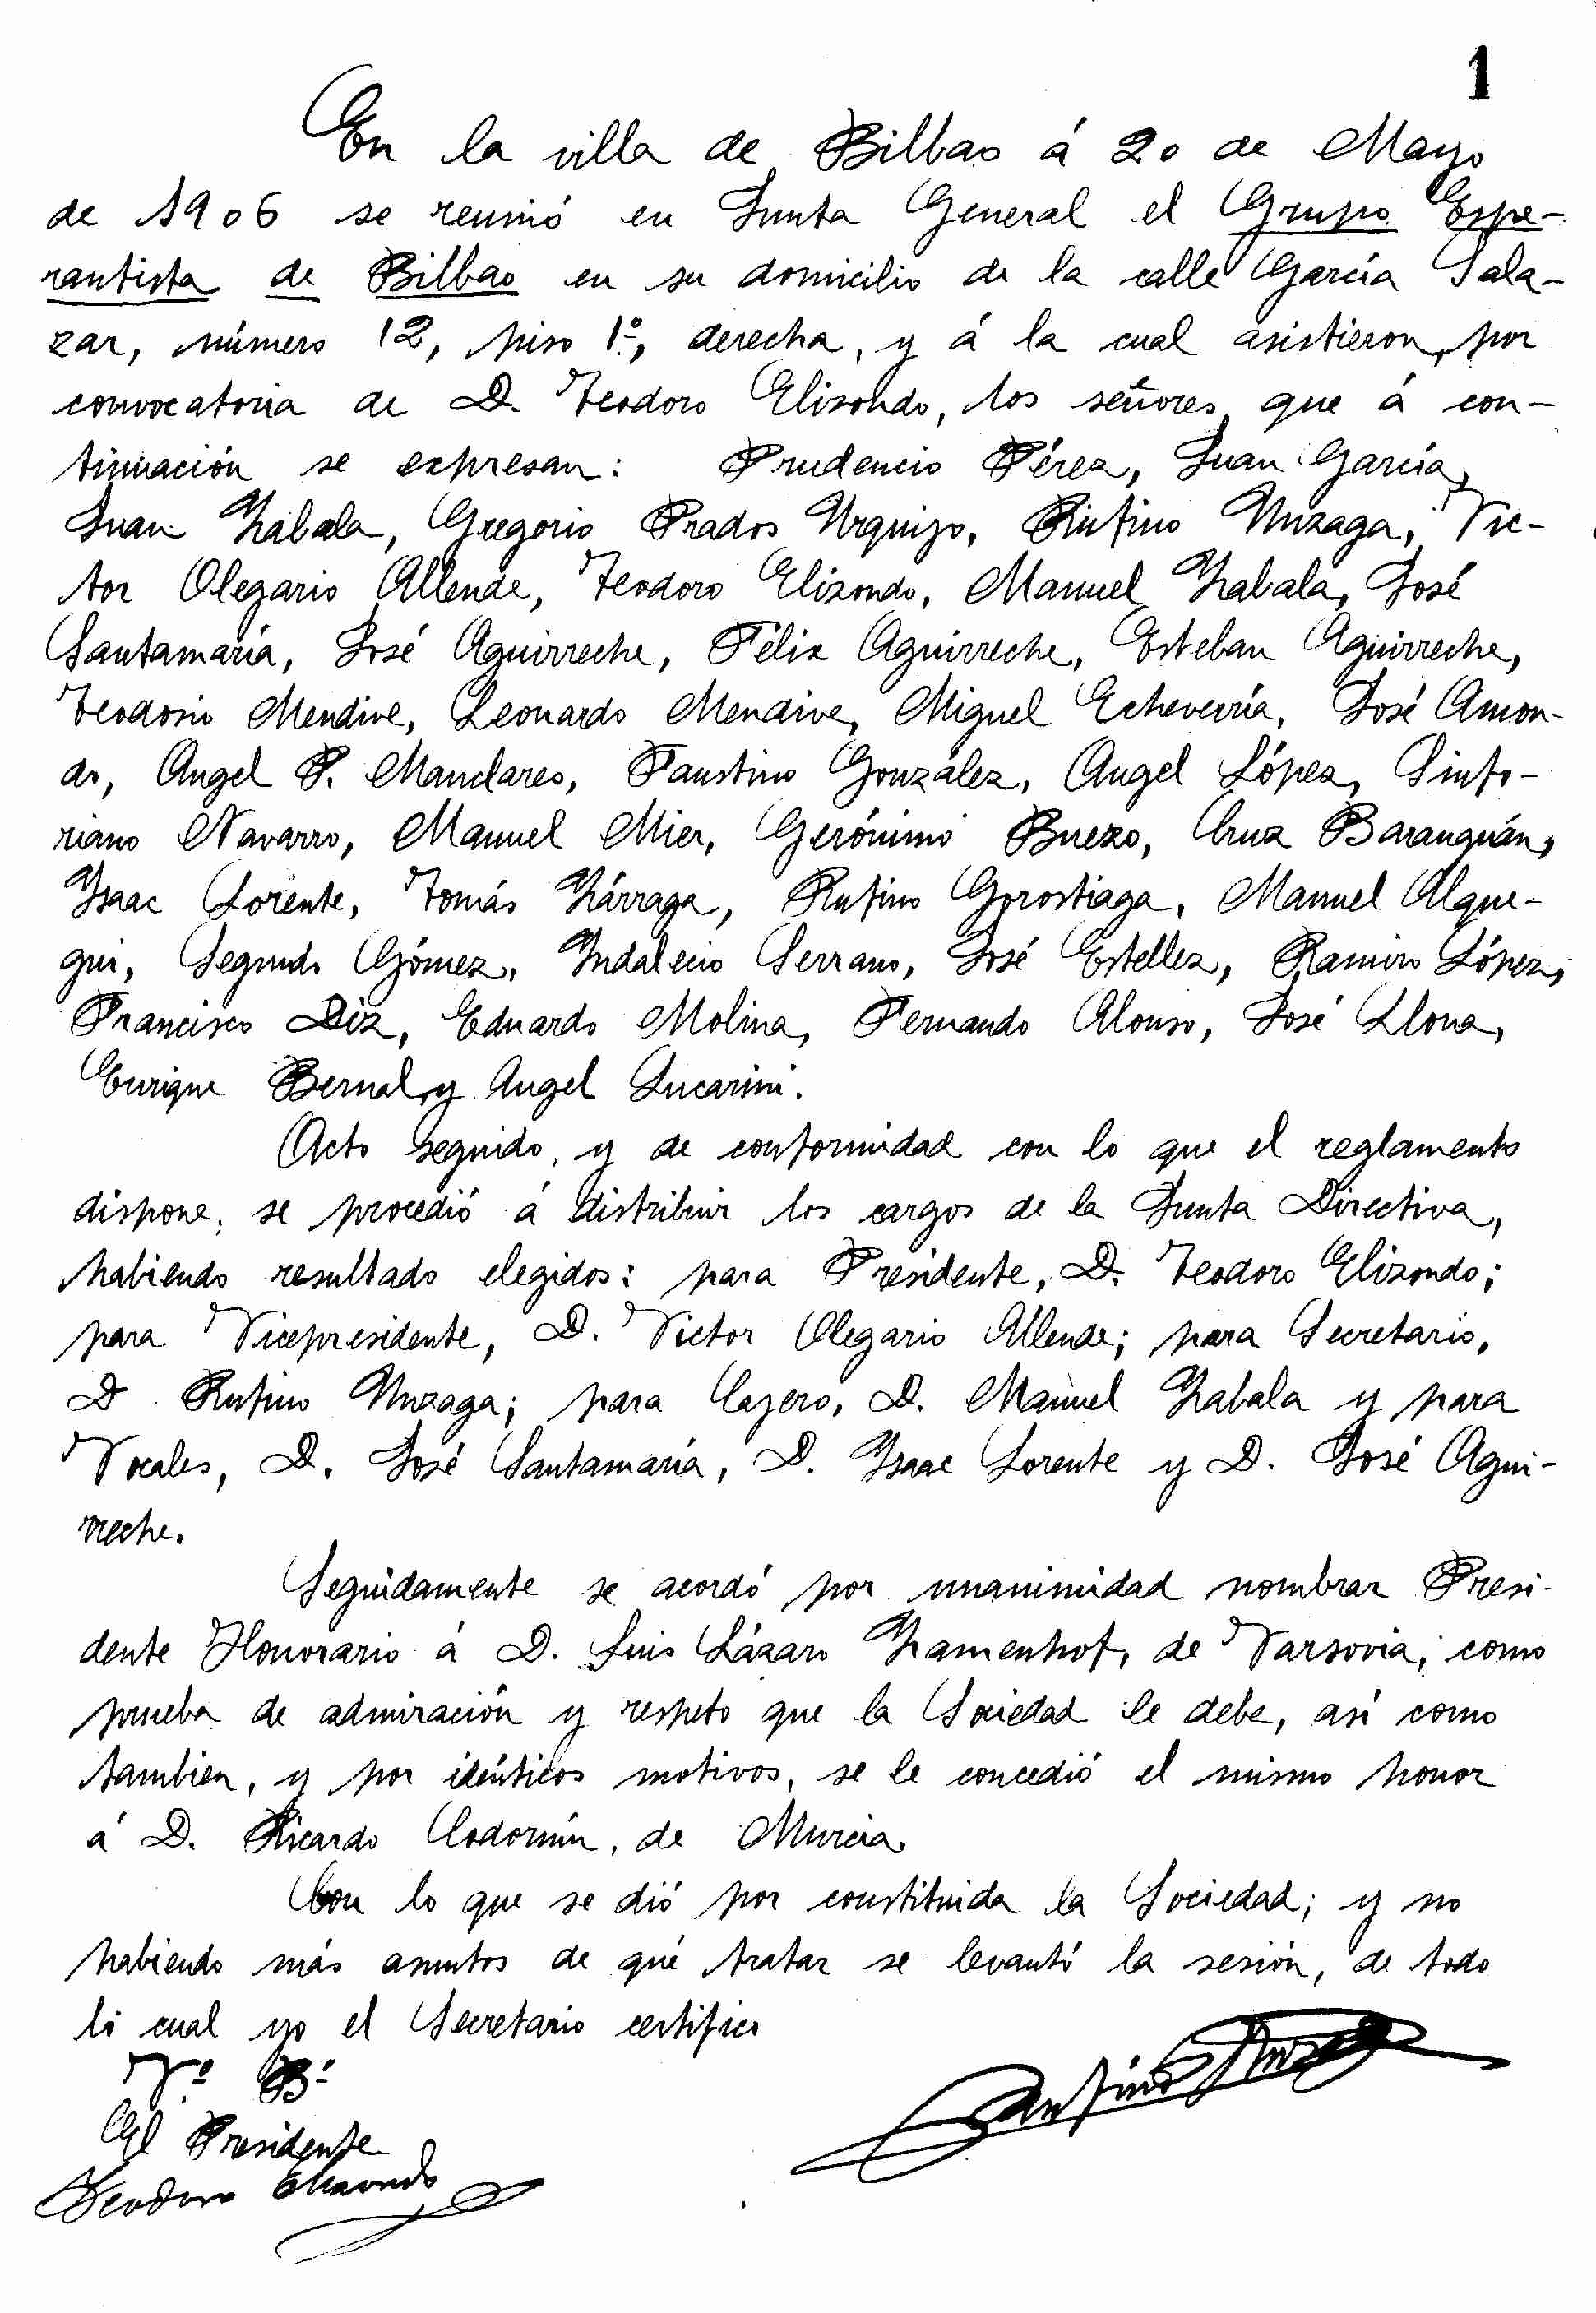 1
En la villa de Bilbao á 20 de Mayo
de 1906 se reunió en Junta General el Grupo Espe-
rantista de Bilbao en su domicilio de la calle García Sala-
zar, número 12, piso 1º, derecha, y á la cual asistieron, por
convocatoria de D. Teodoro Elizondo, los señores que á con-
tinuación se expresan: Prudencio Pérez, Juan García,
Juan Zabala, Gregorio Prados Urquijo, Rufino Unzaga, Víc-
tor Olegario Allende, Teodoro Elizondo, Manuel Zabala, José
Santamaría, José Aguirreche, Félix Aguirreche, Esteban Aguirreche,
Teodosio Mendive, Leonardo Mendive, Miguel Echeverría, José Amon-
do, Angel P. Manclares, Faustino González, Angel López, Sinfo-
riano Navarro, Manuel Mier, Gerónimo Buezo, Cruz Baranguán,
Isaac Lorente, Tomás Zárraga, Rufino Gorostiaga, Manuel Alque-
gui, Segundo Gómez, Indalecio Serrano, José Estellez, Ramiro López,
Francisco Diz, Eduardo Molina, Fernando Alonso, José Llona,
Enrique Bernal y Angel Lucarini.
Acto seguido, y de conformidad con lo que el reglamento
dispone, se procedió á distribuir los cargos de la Junta Directiva,
habiendo resultado elegidos: para Presidente, D. Teodoro Elizondo;
para Vicepresidente, D. Victor Olegario Allende; para Secretario,
D. Rufino Unzaga; para Cajero, D. Manuel Zabala y para
Vocales, D. José Santamaría, D. Isaac Lorente y D. José Agui-
rreche.
Seguidamente se acordó por unanimidad nombrar Presi-
dente Honorario á D. Luis Lázaro Zamenhof, de Varsovia, como
prueba de admiración y respeto que la Sociedad le debe, así como
tambien, y por idénticos motivos, se le concedió el mismo honor
á D. Ricardo Codorníu, de Murcia.
Con lo que se dió por constituida la Sociedad; y no
habiendo más asuntos de qué tratar se levantó la sesión, de todo
lo cual yo el Secretario certifico
Vº Bº
El Presidente
Teodoro Elizondo
Rufino Unzaga